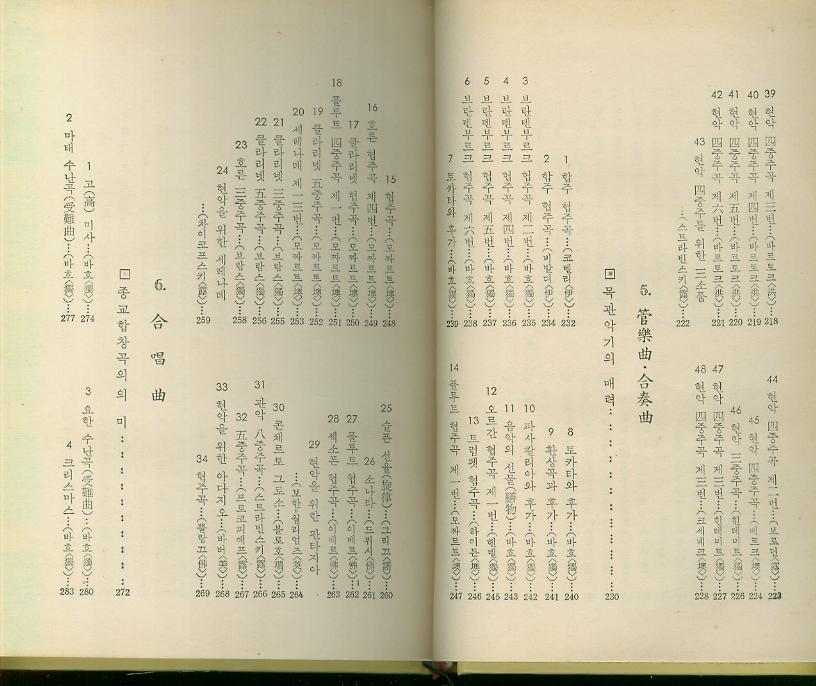 39 현악 四중주곡 제三번…(바르토크〈洪〉…218
40 현악 四중주곡 제四번…(바르토크〈洪〉…219
41 현악 四중주곡 제五번…(바르토크〈洪〉…220
42 현악 四중주곡 제六번…(바르토크〈洪〉…221
43 현악 四중주를 위한 三소품
…(스트라빈스키〈露〉…222
44 현악 四중주곡 제二번…(보로딘〈露〉…223
45 현악 四중주곡…(베르크〈墺〉…224
46 현악 三중주곡…(힌데미트〈獨〉…226
47 현악 四중주곡 제三번…(힌데미트〈獨〉…227
48 현악 四중주곡 제三번…(크셰네크〈墺〉…228
5. 管樂曲·合奏曲
▣ 목관악기의 매력…230
1. 합주 협주곡…(코렐리〈伊〉…232
2 합주 협주곡…(비발디〈伊〉…234
3 브란덴부르크 협주곡 제二번…(바흐〈獨〉…235
4 브란덴부르크 협주곡 제四번…(바흐〈獨〉…236
5 브란덴부르크 협주곡 제五번…(바흐〈獨〉…237
6 브란덴부르크 협주곡 제六번…(바흐〈獨〉…238
7 토카타와 후가…(바흐〈獨〉…239
8 토카타와 후가…(바흐〈獨〉…240
9 환상곡과 후가…(바흐〈獨〉…241
10 파사칼리아와 후가…(바흐〈獨〉…242
11 음악의 선물(膳物)…(바흐〈獨〉…243
12 오르간 협주곡 제一번…(헨델〈獨〉…245
13 트럼펫 협주곡…(하이든〈墺〉…246
14 플루트 협주곡 제一번…(모짜르트〈墺〉…247
15 협주곡…(모짜르트〈墺〉…248
16 흐른 협주곡 제四번…(모짜르트〈墺〉…249
17 클라리넷 협주곡…(모짜르트〈墺〉…250
18 플루트 四중주곡 제一번…(모짜르트〈墺〉…251
19 클라리넷 五중주곡…(모짜르트〈墺〉…252
20 세레나데 제一三번…(모짜르트〈墺〉…253
21 클라리넷 三중주곡…(브람스〈獨〉…255
22 클라리넷 五중주곡…(브람스〈獨〉…256
23 호른 三중주곡…(브람스〈獨〉…258
24 현악을 위한 세레나데
…(차이코프스키〈露〉…259
25 슬픈 선율(旋律)…(그리그〈諾〉…260
26 소나타…(드뷔시〈佛〉…261
27 플루트 협주곡…(이베르〈佛〉…262
28 섹소폰 협주곡…(이베르〈佛〉…263
29 현악을 위한 판타지아
…(보한=윌리엄즈〈英〉…264
30 콘체르토 그로소…(블로흐〈瑞〉…265
31 관악 八중주곡…(스트라빈스키〈露〉…266
32 五중주곡…(프로코피에프〈露〉…267
33 현악을 위한 아다지오…(바버〈美〉…268
34 협주곡…(풀랑끄〈佛〉…269
6. 合唱曲
▣ 종교합창곡의 미…272
1 고(高) 미사…(바흐〈獨〉…274
2 마태 수난곡(受難曲)…(바흐〈獨〉…277
3 요한 수난곡(受難曲)…(바흐〈獨〉…280
4 크리스마스…(바흐〈獨〉…283